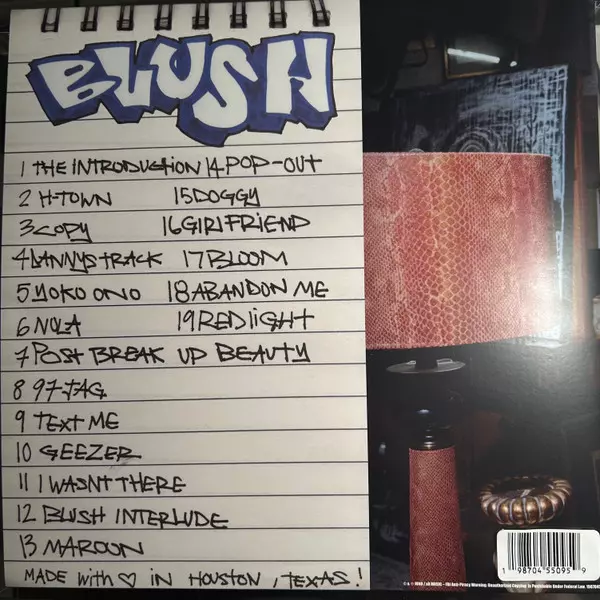 BLUSH
1 THE INTRODUCTION 14 POP-OUT
2 H-TOWN 15 DOGGY
3 COPY 16 GIRLFRIEND
4 LANNYS TRACK 17 BLOOM
5 YOKO ONO 18 ABANDON ME
6 NOLA 19 REDLIGHT
7 POST BREAK UP BEAUTY
8 97-JAG
9 TEXT ME
10 GEEZER
11 I WASNT THERE
12 BLUSH INTERLUDE
13 MAROON
MADE with ♡ IN HOUSTON, TEXAS!
1 98704 55095 9